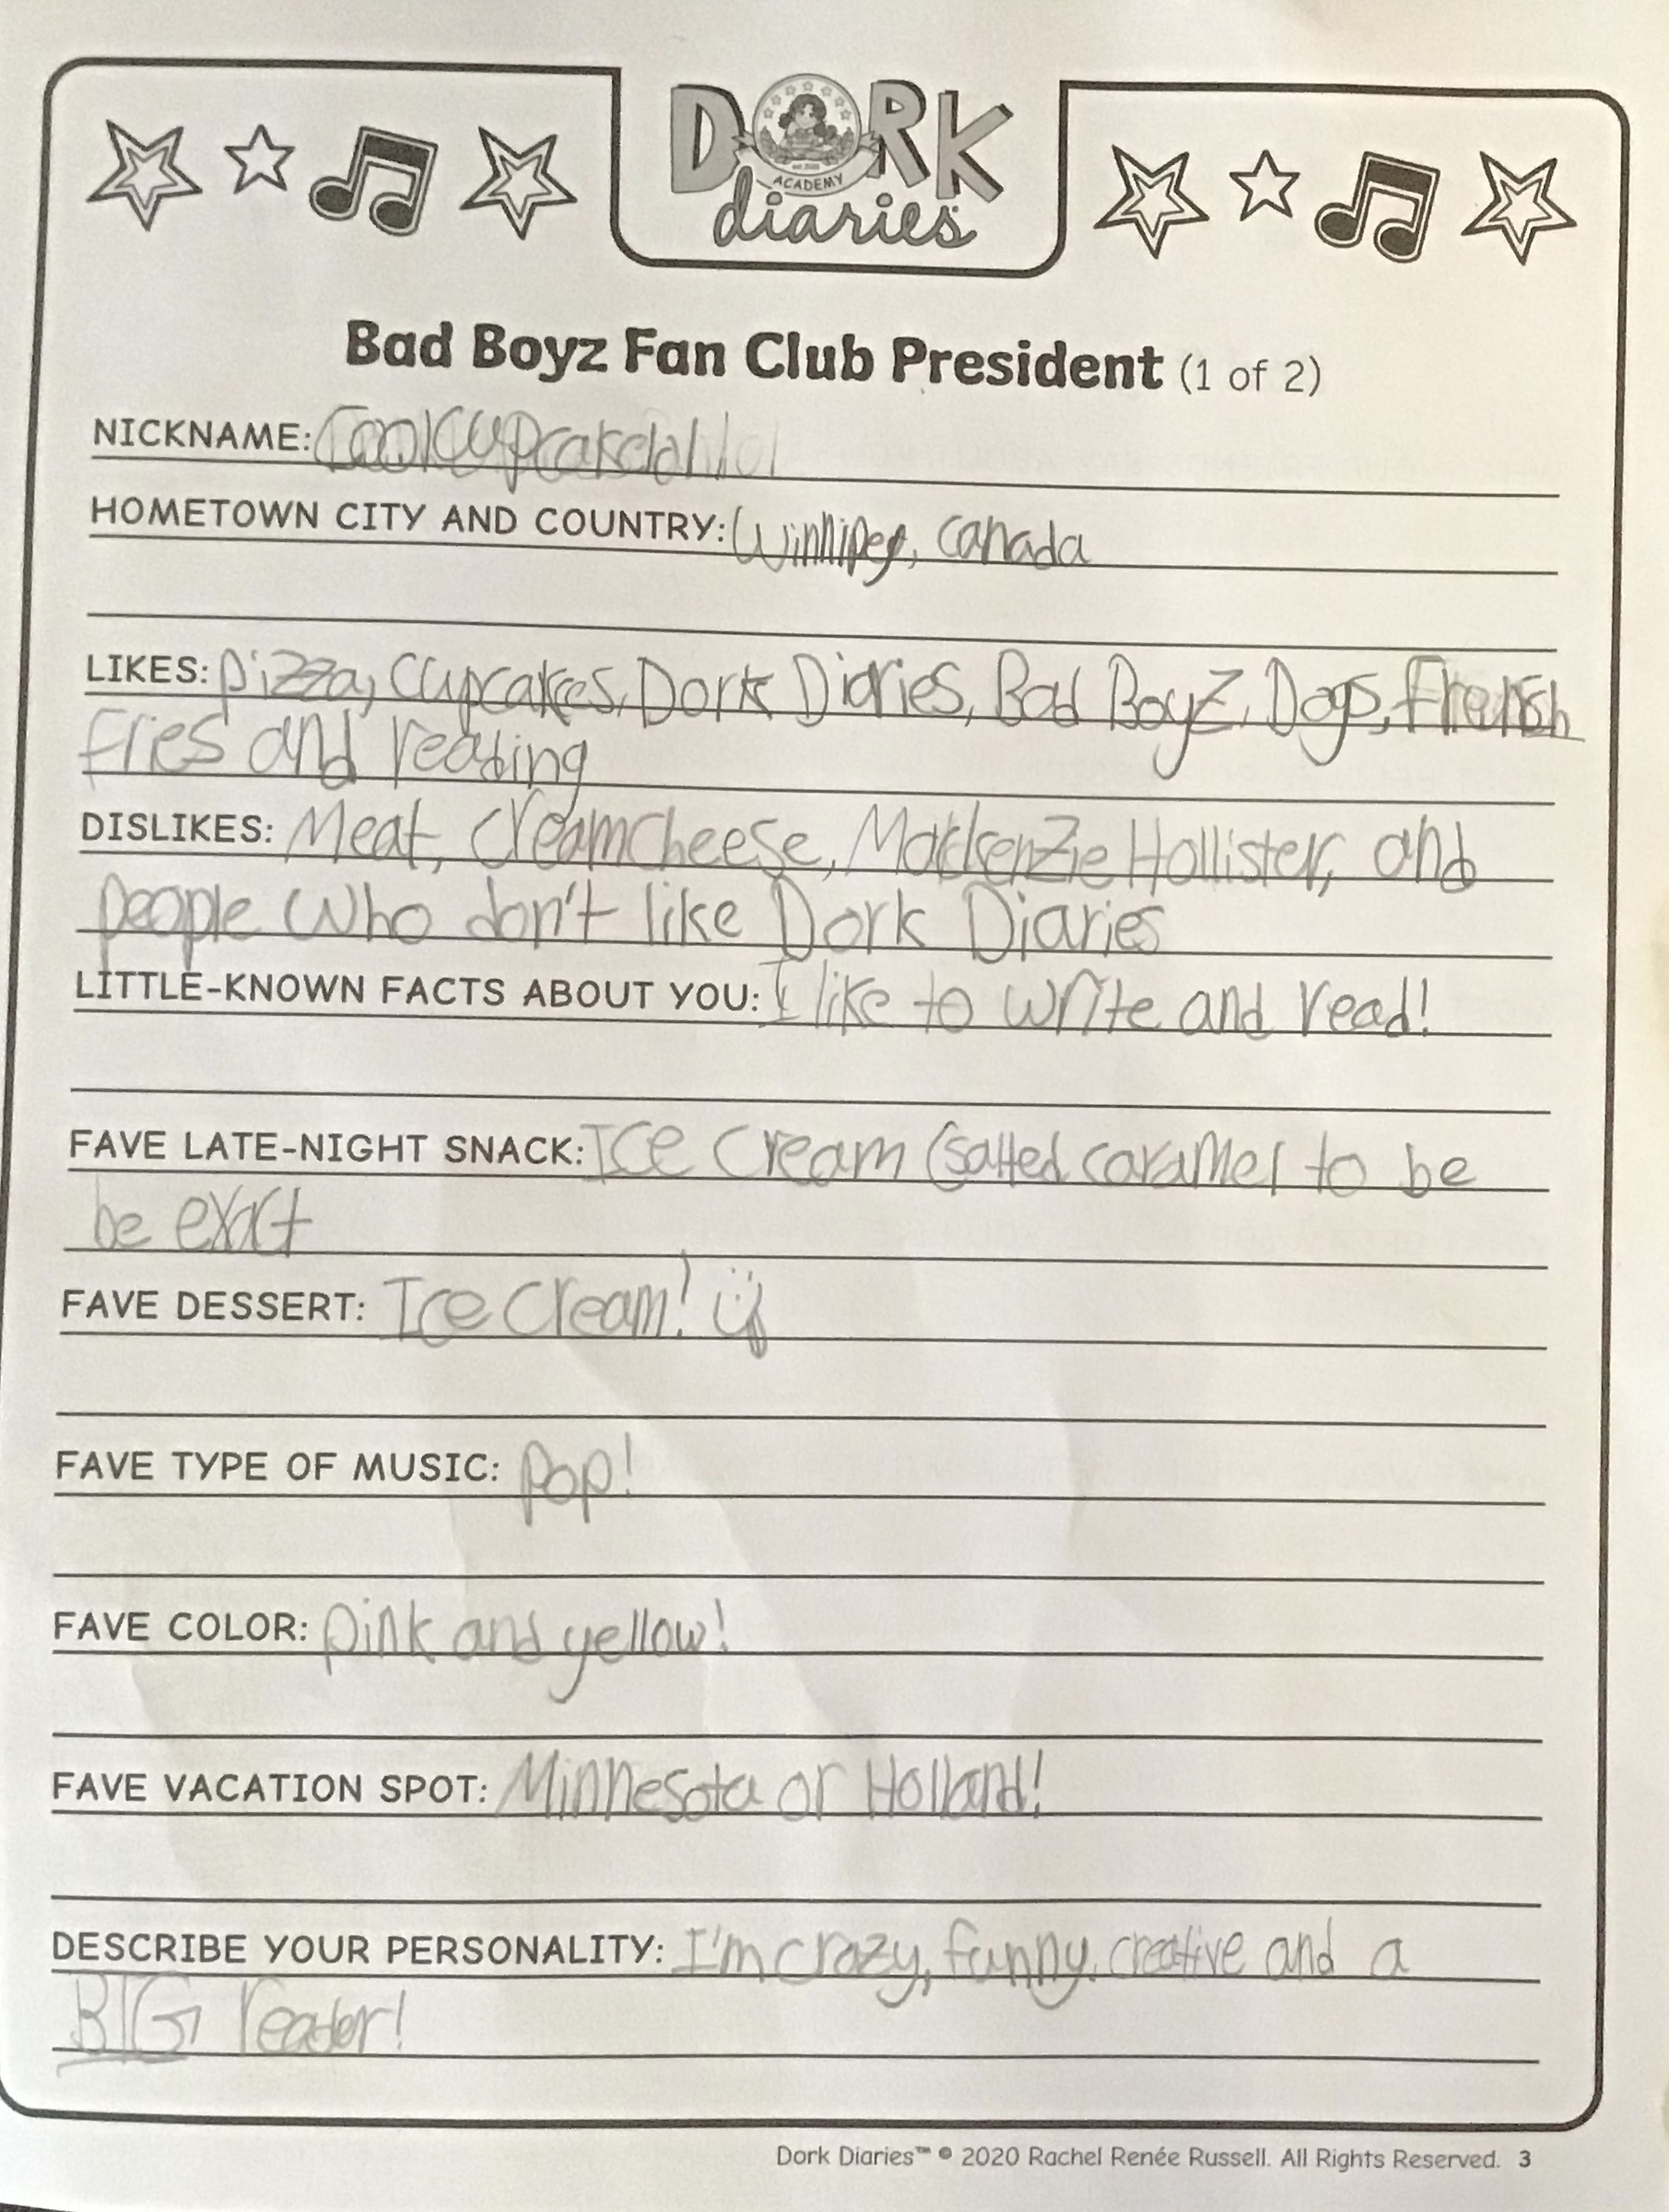 DORK
ACADEMY
diaries
Bad Boyz Fan Club President (1 of 2)
NICKNAME:
HOMETOWN CITY AND COUNTRY: Winnipeg, Canada
LIKES: Pizza, Cupcakes, Dork Diaries, Bad Boyz, Dogs, French
fries and reading
DISLIKES: Meat, Creamcheese, Mackenzie Hollister, and
people who don't like Dork Diaries
LITTLE-KNOWN FACTS ABOUT YOU: I like to write and read!
FAVE LATE-NIGHT SNACK: Ice Cream (salted caramel to be
be exact
FAVE DESSERT: Ice Cream!
FAVE TYPE OF MUSIC: Pop!
FAVE COLOR: Pink and yellow!
FAVE VACATION SPOT: Minnesota or Holland!
DESCRIBE YOUR PERSONALITY: I'm crazy, funny, creative and a
BIG reader!
Dork Diaries™ © 2020 Rachel Renée Russell. All Rights Reserved. 3